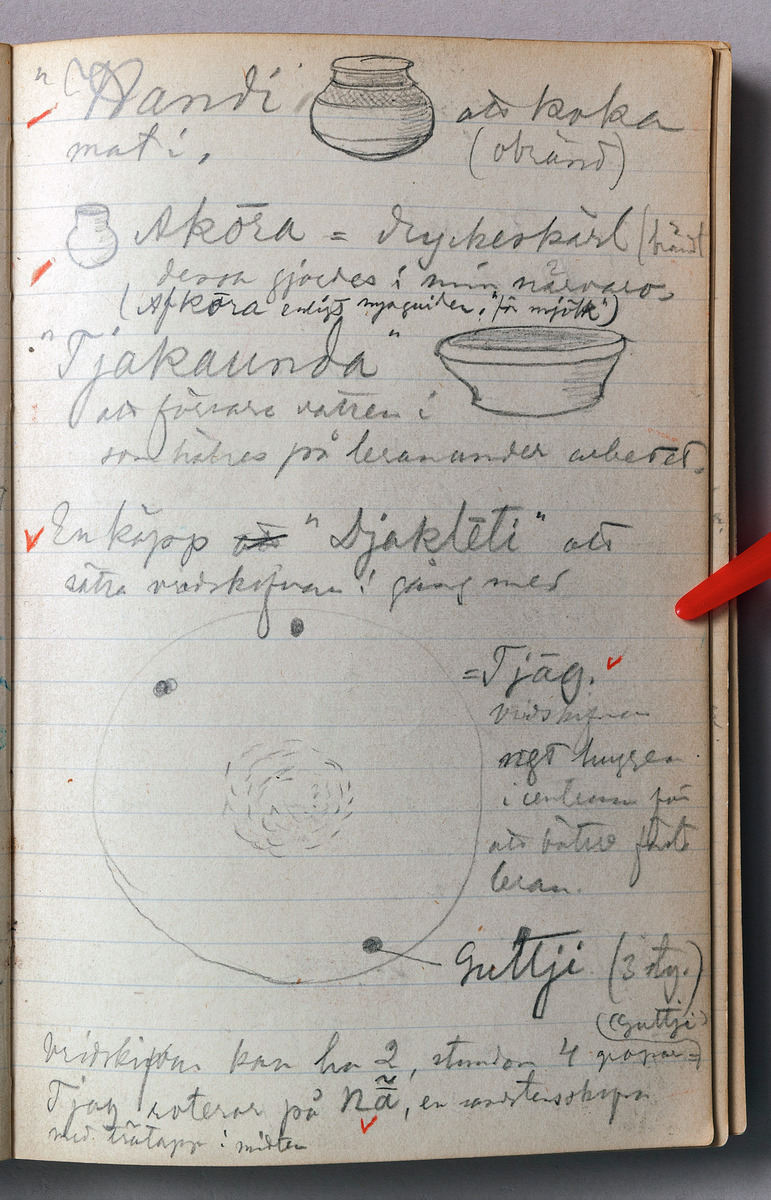 "Handi" att koka
mat i, (obränd)
Akōra = dryckeskärl (bränt
dessa gjordes i min närvaro,
(Afkōra enligt nyaguiden, "för mjölk")
"Tjakaunda"
att förvara vattnet i
som hälles på leran under arbetet.
En käpp "Djaktēti" att
sätta vridskifvan i gång med
=Tjāg.
vridskifvan
huggen
i centrum för
att bättre fästa
leran.
Guttji (3 sty.)
(Guttji)
Vridskifvan kan ha 2, stundom 4 gropar=
Tjag roterar på nā̃, en sandstensskifva
med trätapp i midten